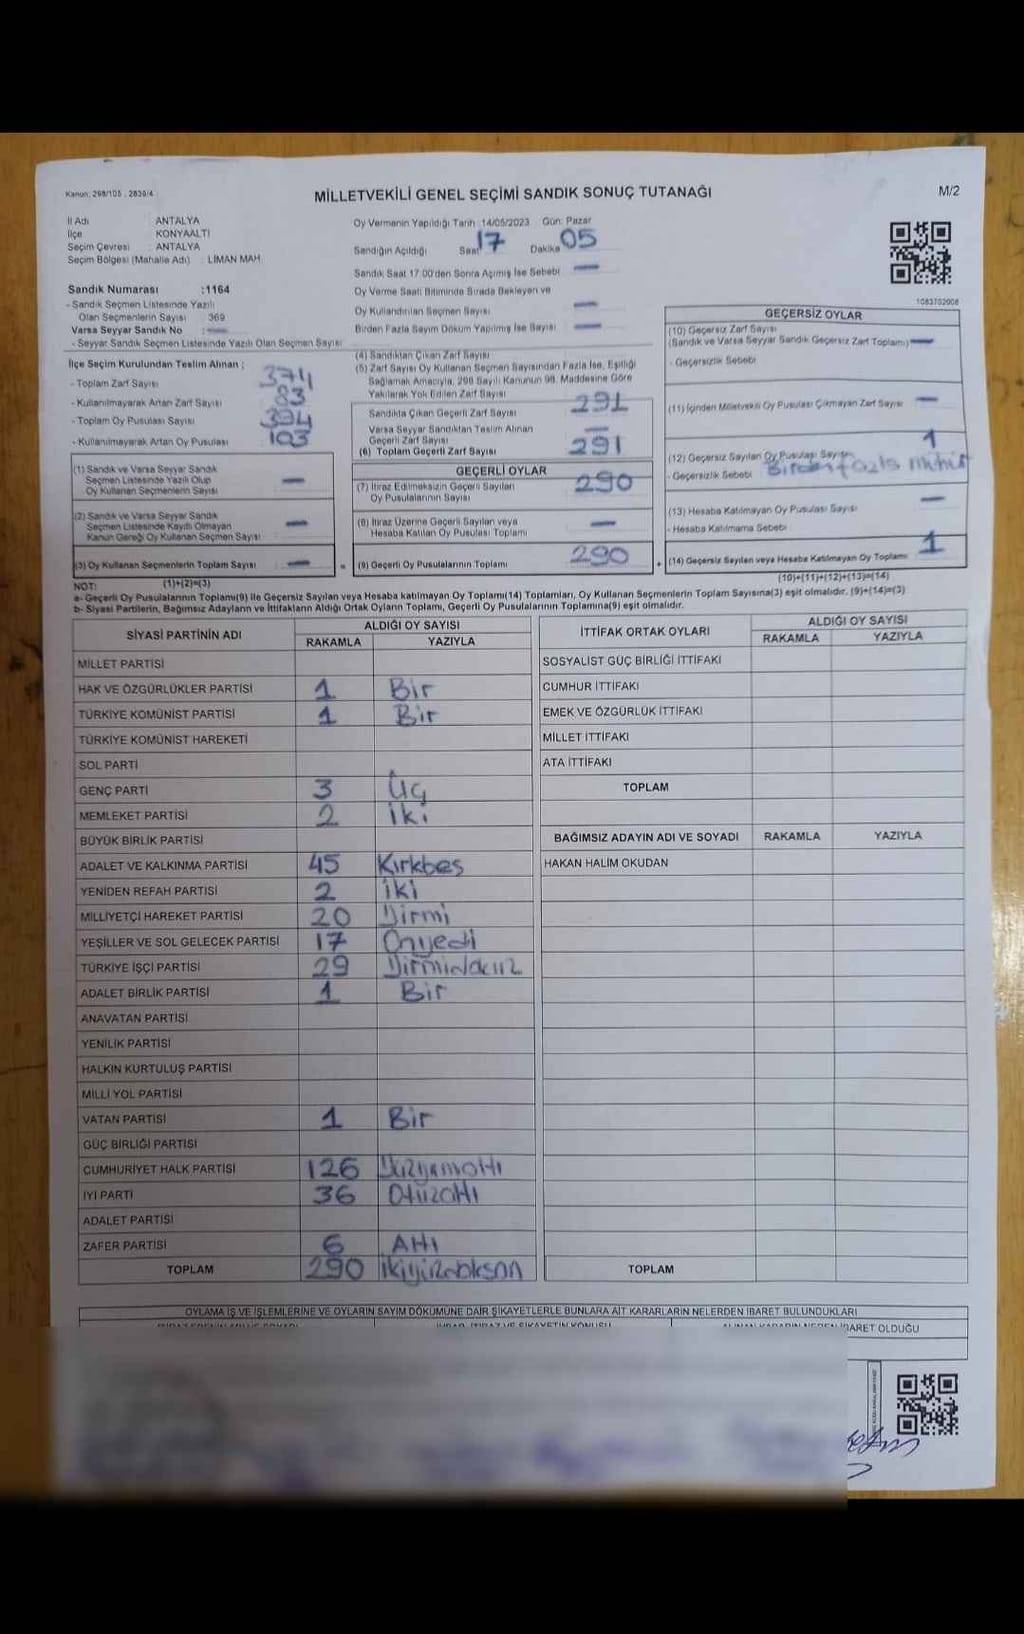 Kanun: 298/105 , 2839/4
MİLLETVEKİLİ GENEL SEÇİMİ SANDIK SONUÇ TUTANAĞI
M/2
İl Adı : ANTALYA
İlçe : KONYAALTI
Seçim Çevresi : ANTALYA
Seçim Bölgesi (Mahalle Adı) : LİMAN MAH.
Sandık Numarası :1164
- Sandık Seçmen Listesinde Yazılı
Olan Seçmenlerin Sayısı : 369
Varsa Seyyar Sandık No : —
- Seyyar Sandık Seçmen Listesinde Yazılı Olan Seçmen Sayısı
İlçe Seçim Kurulundan Teslim Alınan :
- Toplam Zarf Sayısı 374
- Kullanılmayarak Artan Zarf Sayısı 83
- Toplam Oy Pusulası Sayısı 394
- Kullanılmayarak Artan Oy Pusulası 103
(1) Sandık ve Varsa Seyyar Sandık
Seçmen Listesinde Yazılı Olup
Oy Kullanan Seçmenlerin Sayısı —
(2) Sandık ve Varsa Seyyar Sandık
Seçmen Listesinde Kayıtlı Olmayan
Kanun Gereği Oy Kullanan Seçmen Sayısı —
(3) Oy Kullanan Seçmenlerin Toplam Sayısı —
(1)+(2)=(3)
Oy Vermenin Yapıldığı Tarih :14/05/2023 Gün: Pazar
Sandığın Açıldığı Saat 17 Dakika 05
Sandık Saat 17:00'den Sonra Açılmış İse Sebebi —
Oy Verme Saati Bitiminde Sırada Bekleyen ve
Oy Kullandırılan Seçmen Sayısı —
Birden Fazla Sayım Döküm Yapılmış İse Sayısı —
(4) Sandıktan Çıkan Zarf Sayısı
(5) Zarf Sayısı Oy Kullanan Seçmen Sayısından Fazla İse, Eşitliği
Sağlamak Amacıyla, 298 Sayılı Kanunun 98. Maddesine Göre
Yakılarak Yok Edilen Zarf Sayısı
Sandıkta Çıkan Geçerli Zarf Sayısı 291
Varsa Seyyar Sandıktan Teslim Alınan
Geçerli Zarf Sayısı —
(6) Toplam Geçerli Zarf Sayısı 291
GEÇERLİ OYLAR
(7) İtiraz Edilmeksizin Geçerli Sayılan
Oy Pusulalarının Sayısı 290
(8) İtiraz Üzerine Geçerli Sayılan veya
Hesaba Katılan Oy Pusulası Toplamı —
= (9) Geçerli Oy Pusulalarının Toplamı 290
1083702008
GEÇERSİZ OYLAR
(10) Geçersiz Zarf Sayısı
(Sandık ve Varsa Seyyar Sandık Geçersiz Zarf Toplamı) —
- Geçersizlik Sebebi
(11) İçinden Milletvekili Oy Pusulası Çıkmayan Zarf Sayısı —
(12) Geçersiz Sayılan Oy Pusulası Sayısı 1
- Geçersizlik Sebebi Birden fazla mühür
(13) Hesaba Katılmayan Oy Pusulası Sayısı —
- Hesaba Katılmama Sebebi
+ (14) Geçersiz Sayılan veya Hesaba Katılmayan Oy Toplamı 1
(10)+(11)+(12)+(13)=(14)
NOT:
a- Geçerli Oy Pusulalarının Toplamı(9) ile Geçersiz Sayılan veya Hesaba katılmayan Oy Toplamı(14) Toplamları, Oy Kullanan Seçmenlerin Toplam Sayısına(3) eşit olmalıdır. (9)+(14)=(3)
b- Siyasi Partilerin, Bağımsız Adayların ve İttifakların Aldığı Ortak Oyların Toplamı, Geçerli Oy Pusulalarının Toplamına(9) eşit olmalıdır.
SİYASİ PARTİNİN ADI ALDIĞI OY SAYISI
RAKAMLA YAZIYLA
MİLLET PARTİSİ
HAK VE ÖZGÜRLÜKLER PARTİSİ 1 Bir
TÜRKİYE KOMÜNİST PARTİSİ 1 Bir
TÜRKİYE KOMÜNİST HAREKETİ
SOL PARTİ
GENÇ PARTİ 3 Üç
MEMLEKET PARTİSİ 2 İki
BÜYÜK BİRLİK PARTİSİ
ADALET VE KALKINMA PARTİSİ 45 Kırkbeş
YENİDEN REFAH PARTİSİ 2 İki
MİLLİYETÇİ HAREKET PARTİSİ 20 Yirmi
YEŞİLLER VE SOL GELECEK PARTİSİ 17 Onyedi
TÜRKİYE İŞÇİ PARTİSİ 29 Yirmidokuz
ADALET BİRLİK PARTİSİ 1 Bir
ANAVATAN PARTİSİ
YENİLİK PARTİSİ
HALKIN KURTULUŞ PARTİSİ
MİLLİ YOL PARTİSİ
VATAN PARTİSİ 1 Bir
GÜÇ BİRLİĞİ PARTİSİ
CUMHURİYET HALK PARTİSİ 126 Yüzyirmialtı
İYİ PARTİ 36 Otuzaltı
ADALET PARTİSİ
ZAFER PARTİSİ 6 Altı
TOPLAM 290 İkiyüzdoksan
İTTİFAK ORTAK OYLARI ALDIĞI OY SAYISI
RAKAMLA YAZIYLA
SOSYALİST GÜÇ BİRLİĞİ İTTİFAKI
CUMHUR İTTİFAKI
EMEK VE ÖZGÜRLÜK İTTİFAKI
MİLLET İTTİFAKI
ATA İTTİFAKI
TOPLAM
BAĞIMSIZ ADAYIN ADI VE SOYADI RAKAMLA YAZIYLA
HAKAN HALİM OKUDAN
TOPLAM
OYLAMA İŞ VE İŞLEMLERİNE VE OYLARIN SAYIM DÖKÜMÜNE DAİR ŞİKAYETLERLE BUNLARA AİT KARARLARIN NELERDEN İBARET BULUNDUKLARI
İBARET OLDUĞU